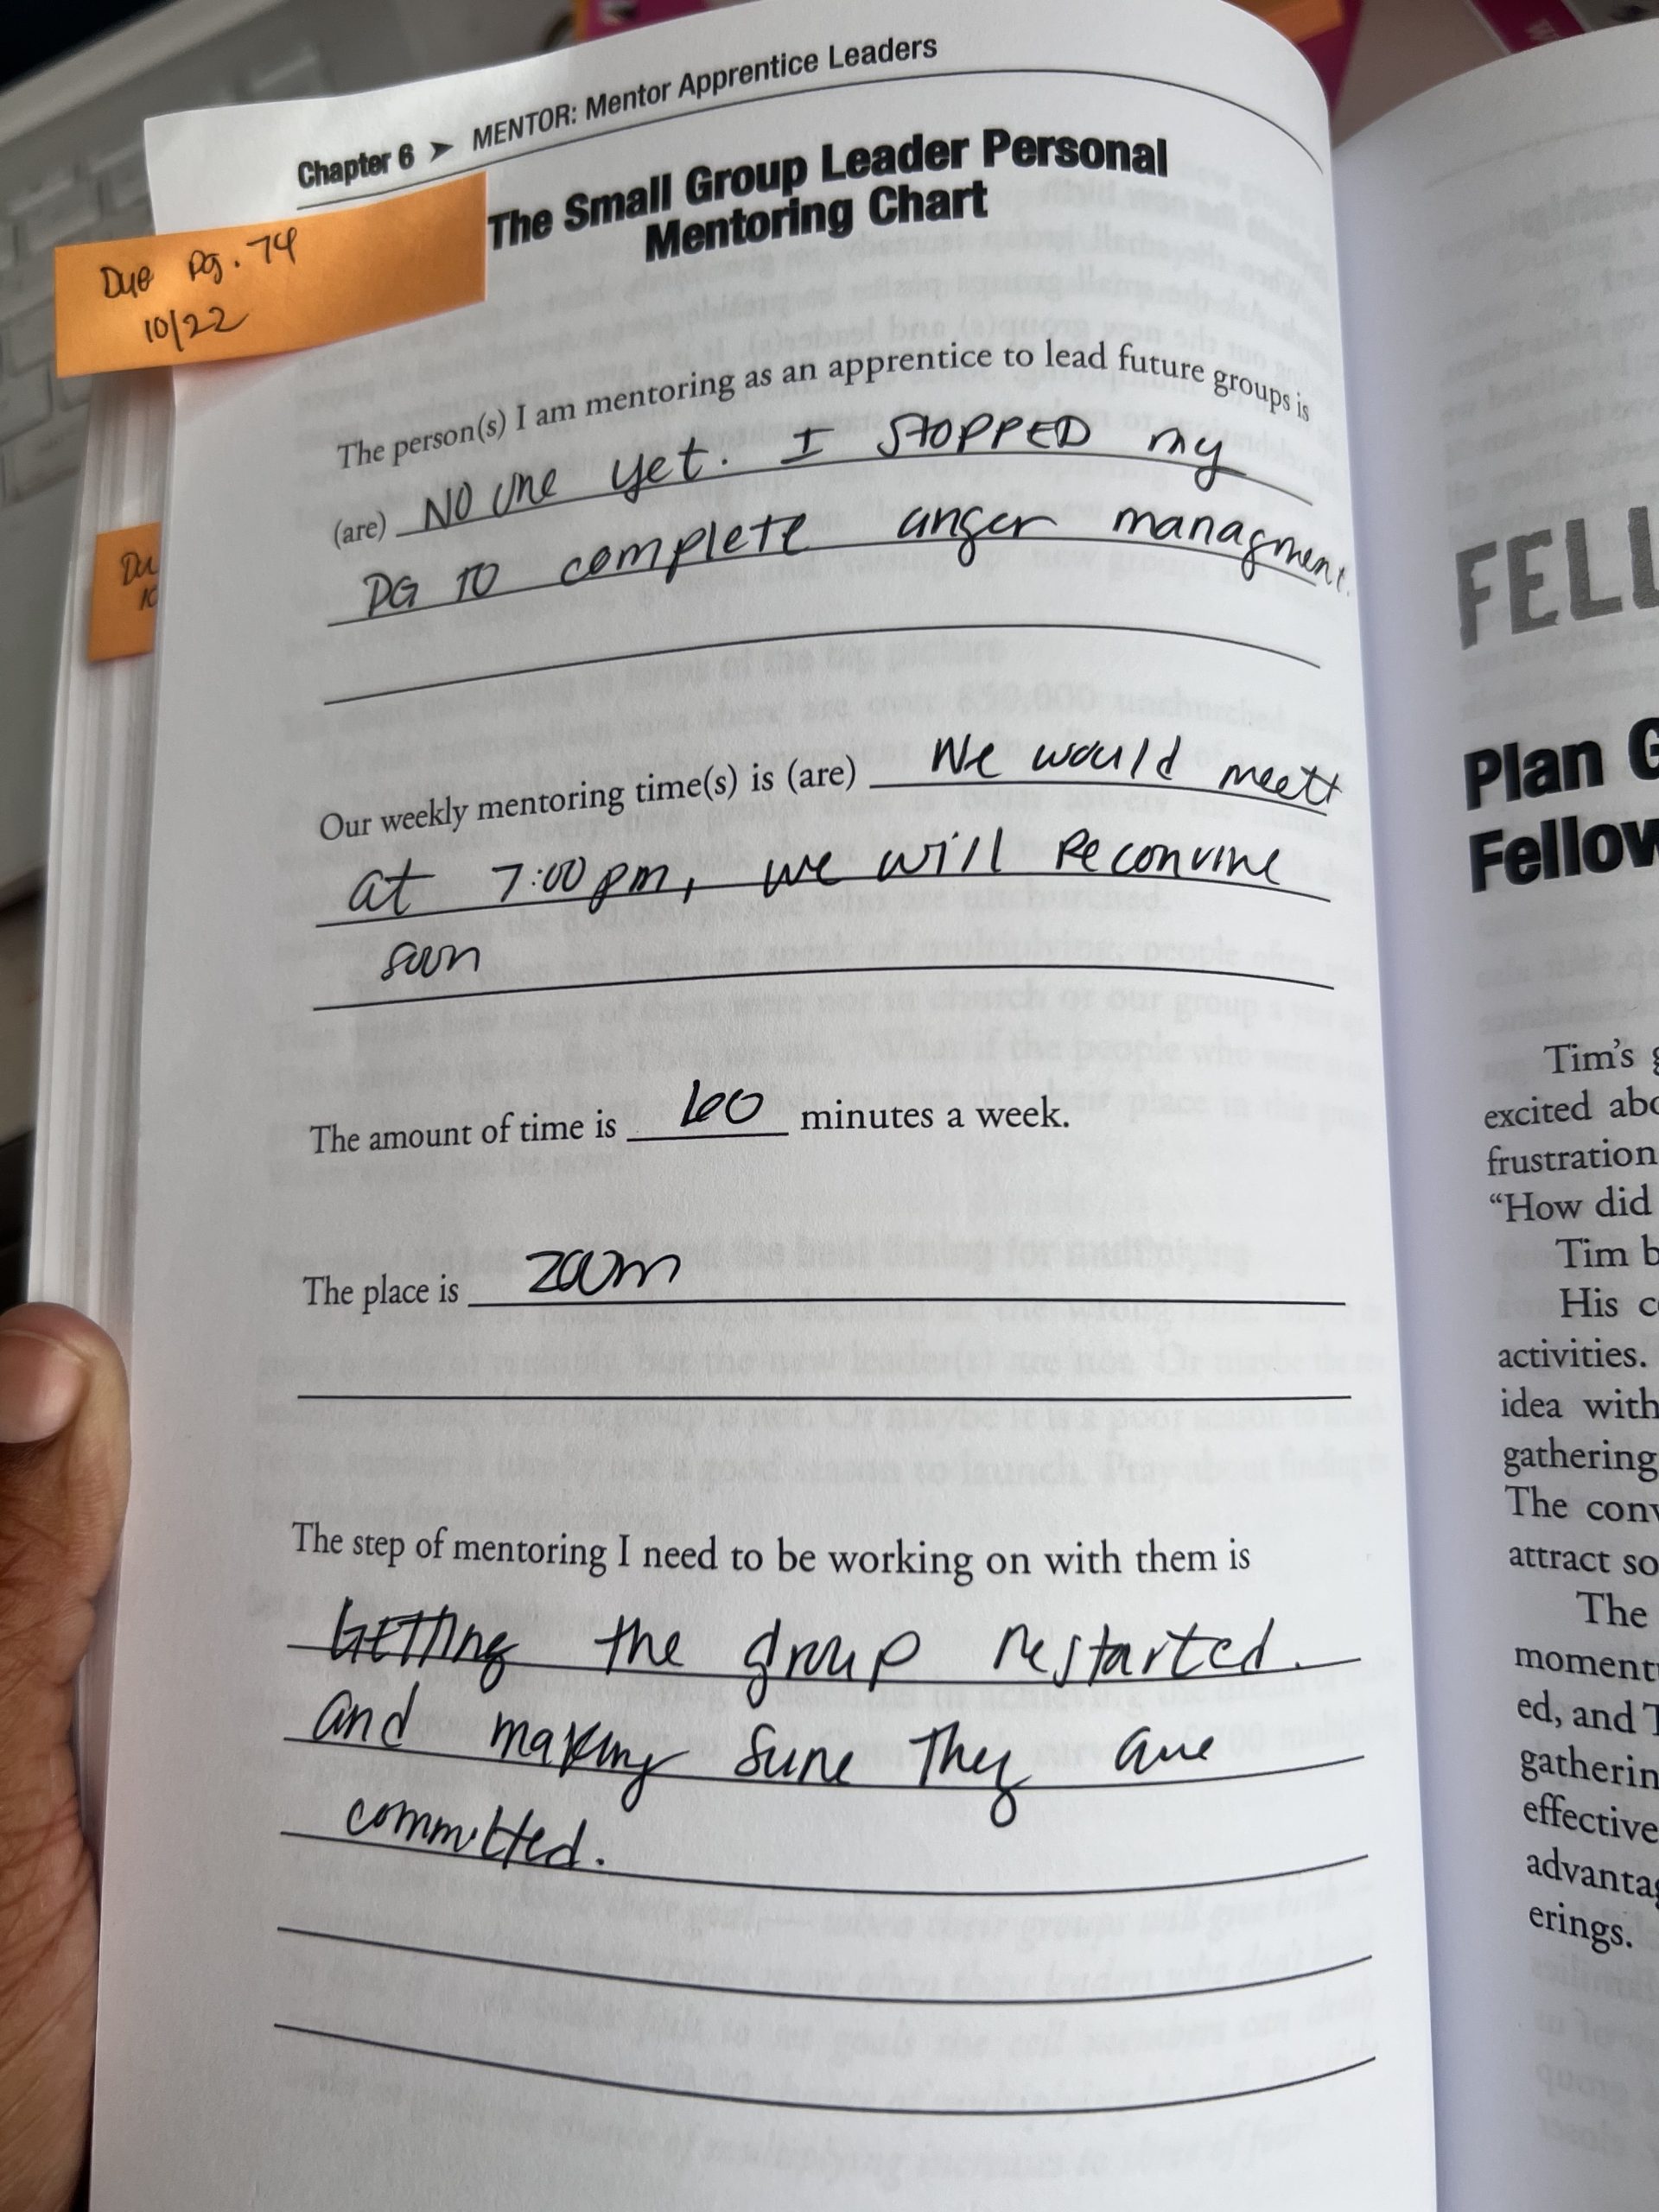 Chapter 6 ➤ MENTOR: Mentor Apprentice Leaders
The Small Group Leader Personal
Mentoring Chart
Due pg. 74
10/22
The person(s) I am mentoring as an apprentice to lead future groups is
(are) NO one yet. I STOPPED my
DG TO complete anger managment.
Our weekly mentoring time(s) is (are) We would meett
at 7:00 pm, we will Reconvine
soon
The amount of time is 60 minutes a week.
The place is zoom
The step of mentoring I need to be working on with them is
Getting the group restarted.
and making sure they are
committed.
Du
FELL
Plan G
Fellow
Tim's g
excited abo
frustration
“How did
Tim b
His co
activities.
idea with
gathering
The conv
attract so
The
moment
ed, and T
gatherin
effective
advantag
erings.